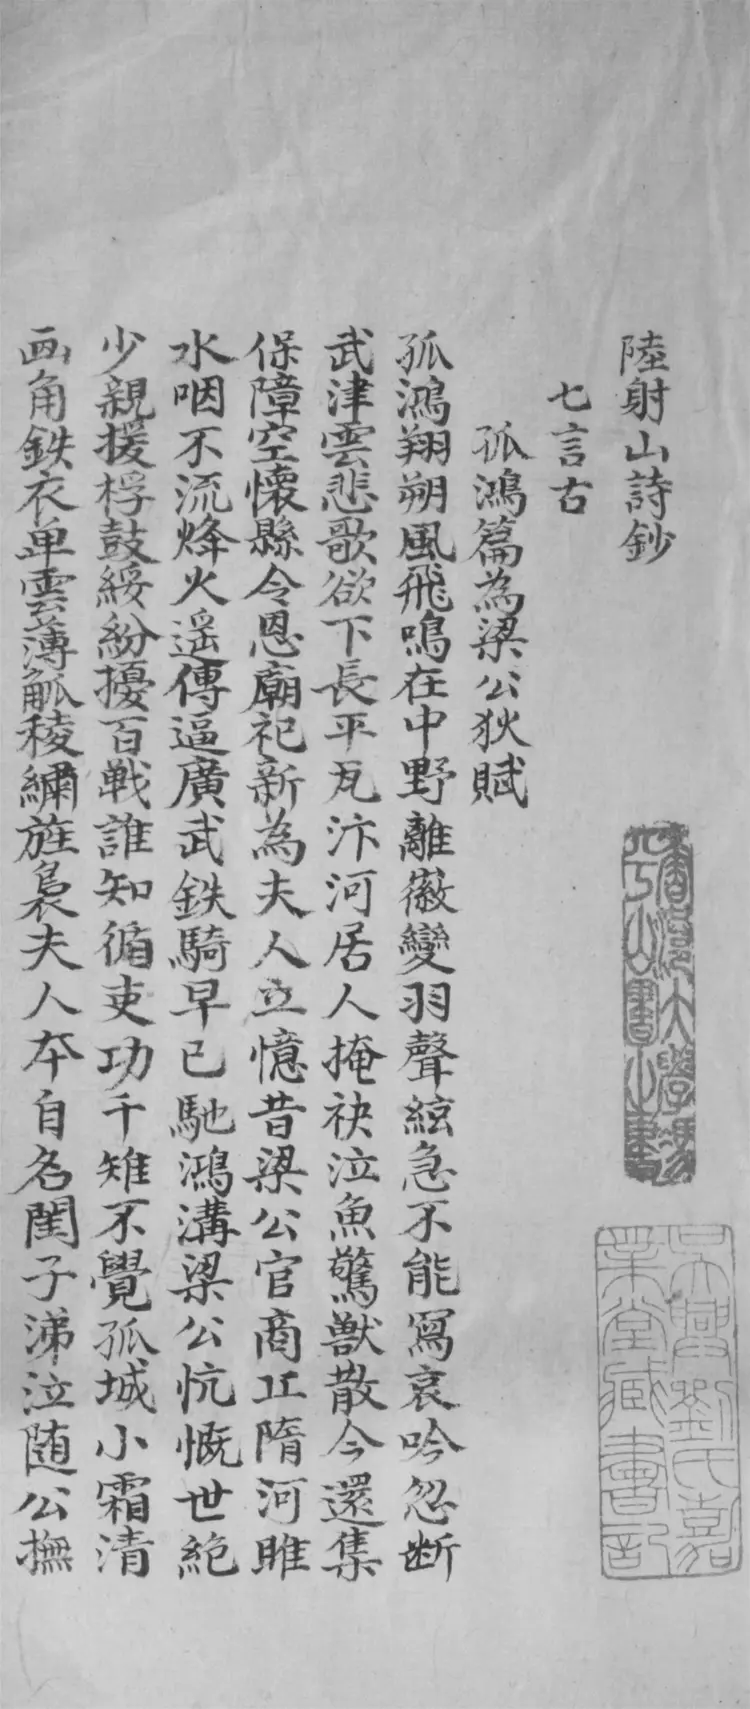 陸射山詩鈔
七言古
孤鴻篇為梁公狄賦
孤鴻翔朔風飛鳴在中野離徽變羽聲絃急不能寫哀吟忽断
武津雲悲歌欲下長平瓦汴河居人掩袂泣魚驚獸散今還集
保障空懷縣令恩廟祀新為夫人立憶昔梁公官商丘隋河雎
水咽不流烽火遥傳逼廣武鉄騎早已馳鴻溝梁公忼慨世絶
少親援桴鼓綏紛擾百戦誰知循吏功千雉不覺孤城小霜清
画角鉄衣单雲薄觚稜繡旌裊夫人本自名閨子涕泣随公撫
吳興劉氏嘉
業堂藏書記